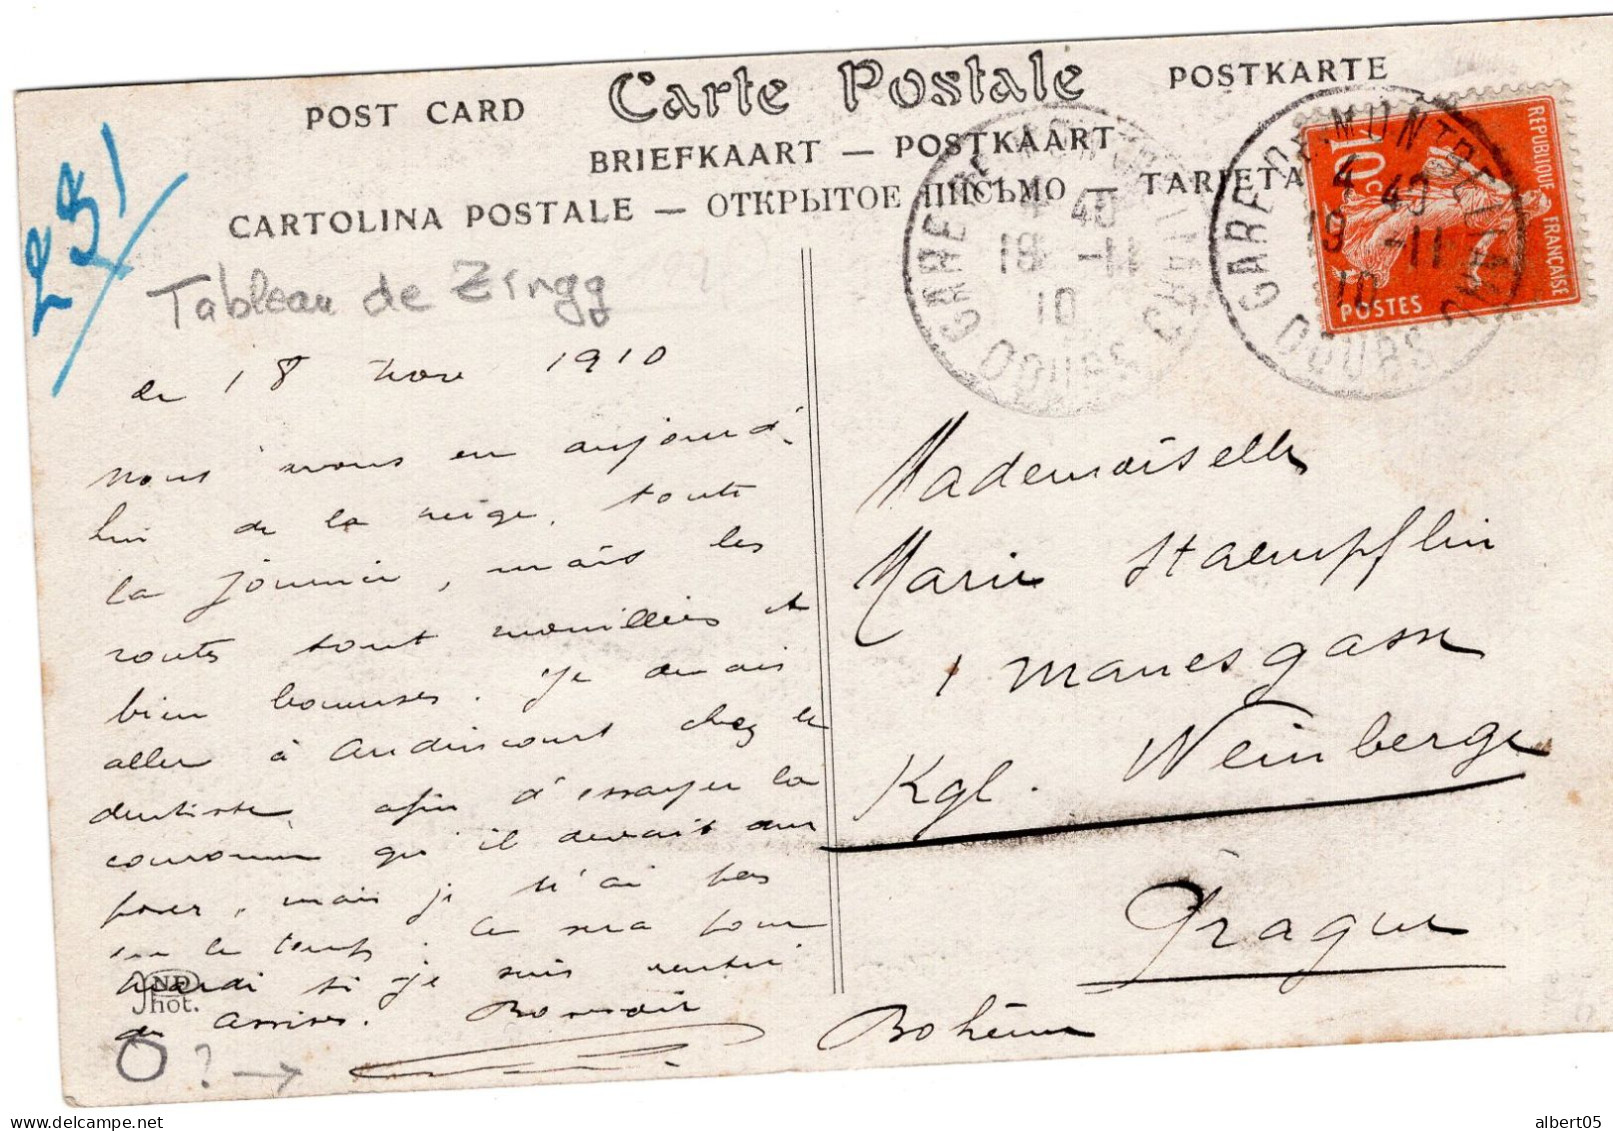 POST CARD Carte Postale POSTKARTE
BRIEFKAART — POSTKAART
CARTOLINA POSTALE — ОТКРЫТОЕ ПИСЬМО — TARJETA
231
Tableau de Zingg
GARE DE MONTBELIARD
4 40
19 -11
10
DOUBS
GARE DE MONTBELIARD
4 40
19 -11
10
DOUBS
REPUBLIQUE FRANÇAISE
10 c
POSTES
le 18 Nove 1910
Nous avons eu aujourd'
hui de la neige, toute
la journée, mais les
routes sont mouillées et
bien boueuses. Je devais
aller à Audincourt chez le
dentiste, afin d'essayer la
couronne qu'il devait me
poser, mais je n'ai pas
eu le temps. Ce sera pour
mardi si je suis rentré
de assises. Bonsoir
ND
Phot.
?
Mademoiselle
Marie Staempflin
1 Manesgasse
Kgl. Weinberge
Prague
Bohême
albert05